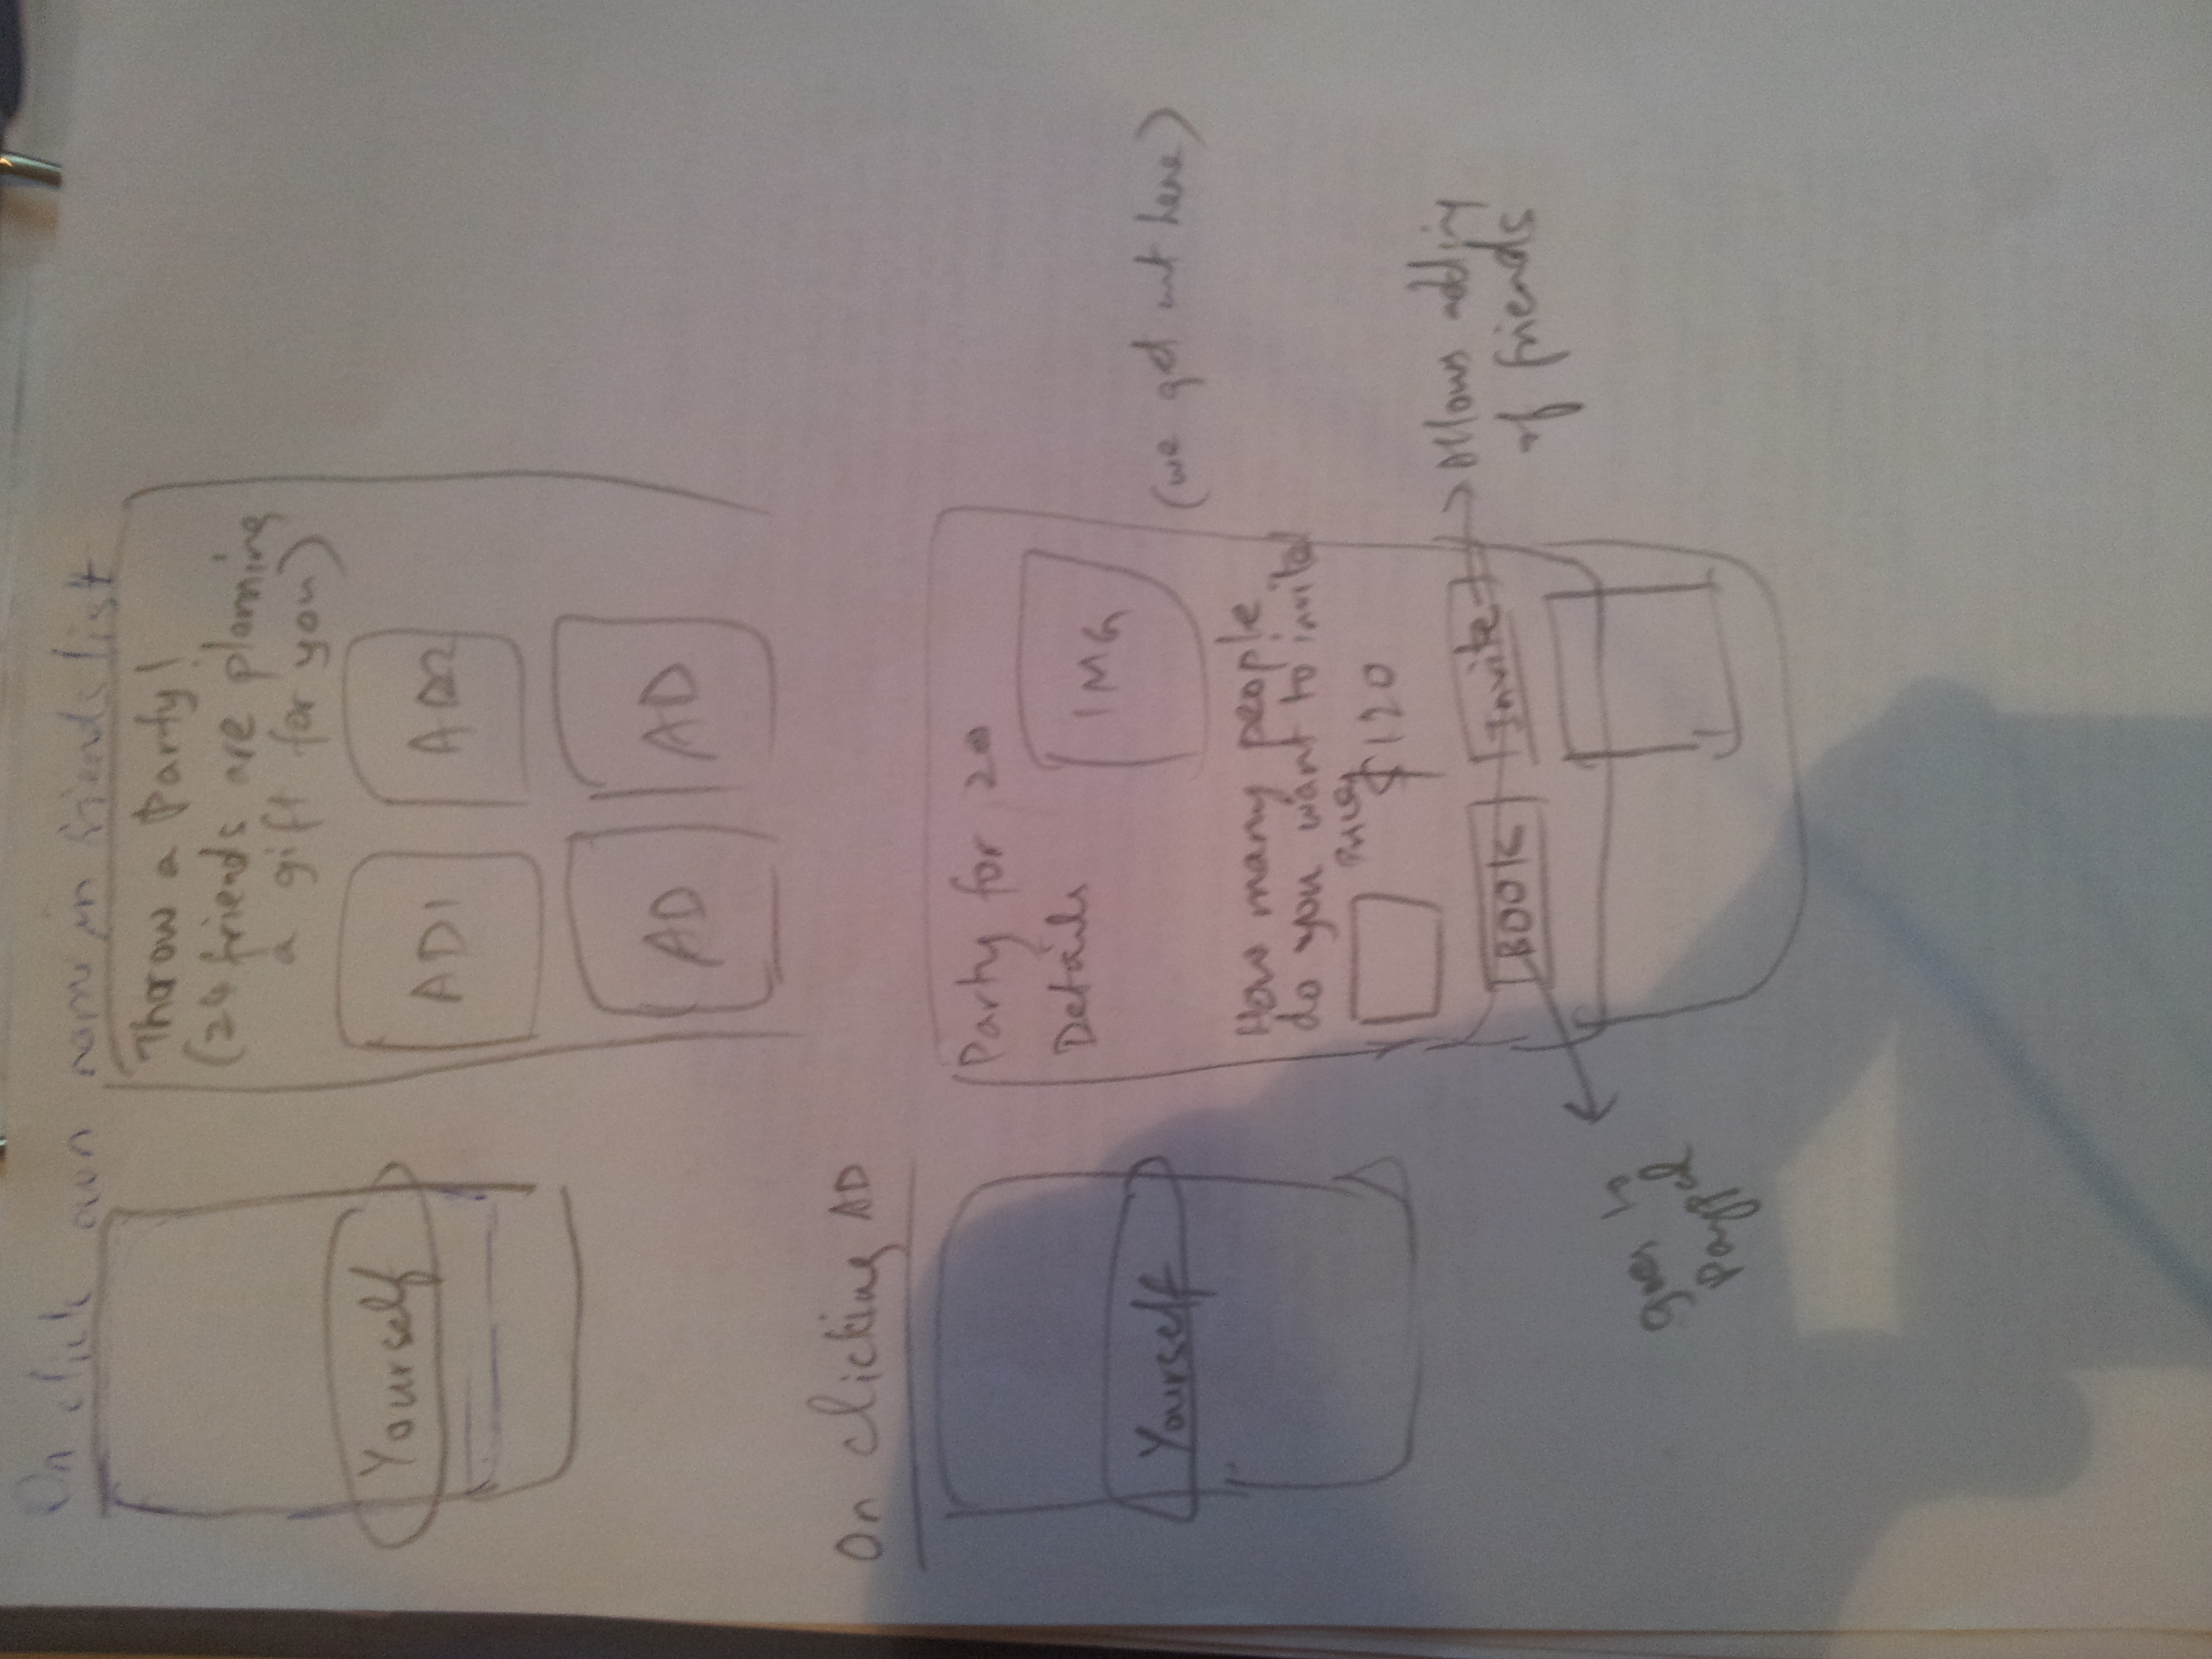 On click own name in friends list
Yourself
Throw a Party!
(24 friends are planning
a gift for you)
AD1 AD2
AD AD
On clicking AD
Yourself
Party for 20
Details
IMG
(we get out here)
How many people
do you want to invite
Price
$120
BOOK Invite
Allows adding
of friends
goes in